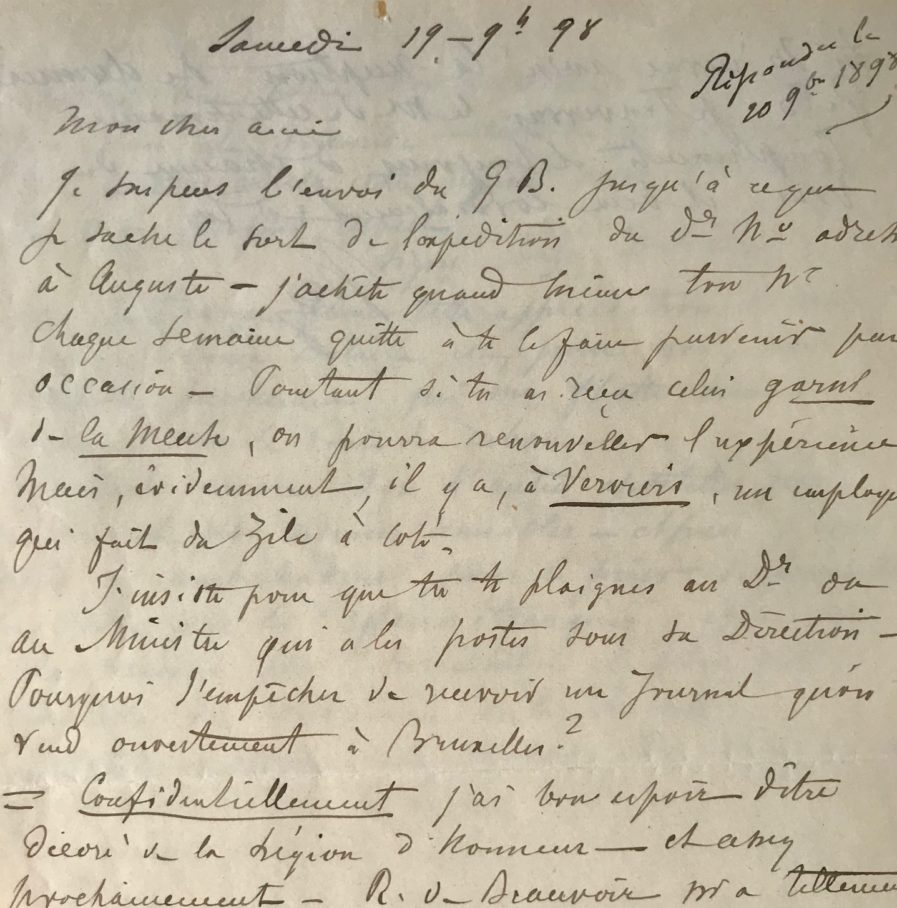 Samedi 19 - 9b 98
Répondu le
20 9bre 1898
Mon cher ami
Je suspens l'envoi du G B. jusqu'à ce que
je sache le sort de l'expédition du dr No adressé
à Auguste - j'achète quand même ton No
chaque semaine quitte à te le faire parvenir par
occasion - Pourtant si tu as reçu celui garni
de la Meute, on pourra renouveller l'expérience
Mais, évidemment, il y a, à Verviers, un employé
qui fait du zèle à coté.
J'insiste pour que tu te plaignes au Dr ou
au Ministre qui a les postes sous sa Direction -
Pourquoi l'empêcher de recevoir un Journal qu'on
vend ouvertement à Bruxelles?
= Confidentiellement j'ai bon espoir d'être
décoré de la Légion d'Honneur - et assez
prochainement - R. de Beauvoir m'a tellement